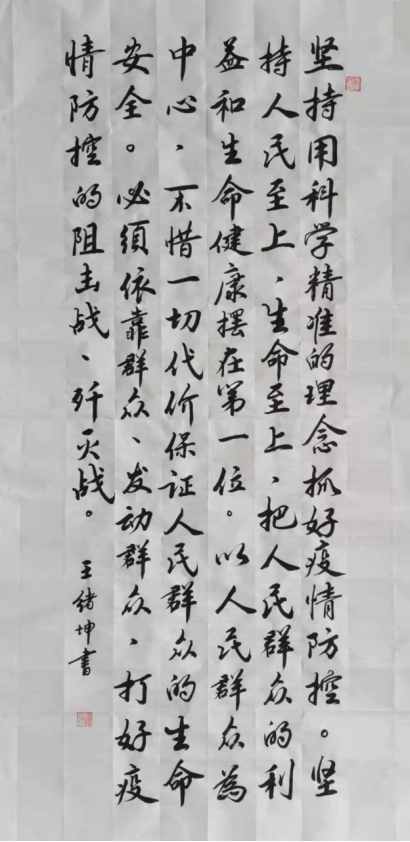 坚持用科学精准的理念抓好疫情防控。坚
持人民至上、生命至上，把人民群众的利
益和生命健康摆在第一位。以人民群众為
中心，不惜一切代价保证人民群众的生命
安全。必须依靠群众、发动群众，打好疫
情防控的阻击战、歼灭战。
王绪坤书